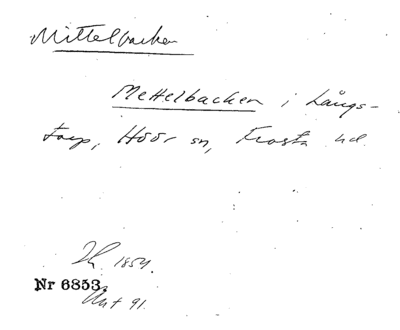 Mittelbacken
Mettelbacken i Långs-
torp, Höör sn, Frosta hd.
1854.
Nr 6853.
Ant 91.